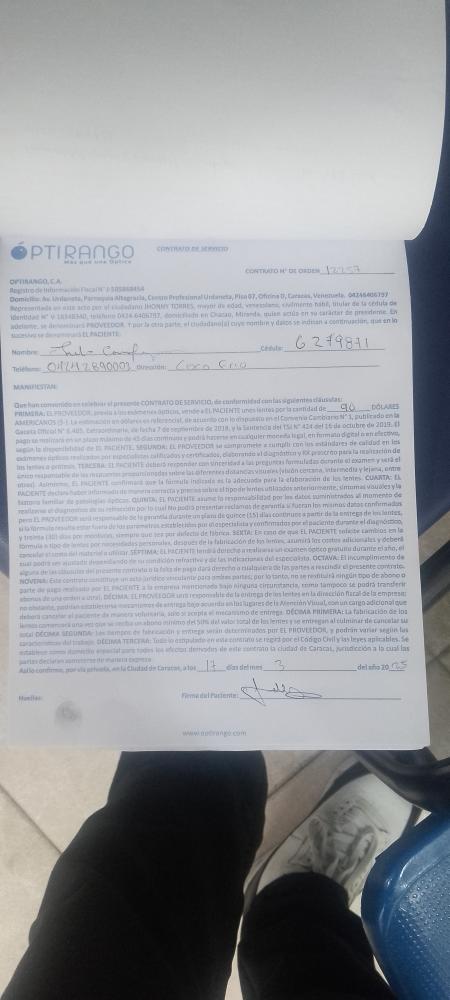 OPTIRANGO
Más que una Óptica
CONTRATO DE SERVICIO
CONTRATO N° DE ORDEN 12257
OPTIRANGO, C.A.
Registro de Información Fiscal N° J-505868454
Domicilio: Av. Urdaneta, Parroquia Altagracia, Centro Profesional Urdaneta, Piso 07, Oficina D, Caracas, Venezuela. 04246406797
Representada en este acto por el ciudadano JHONNY TORRES, mayor de edad, venezolano, civilmente hábil, titular de la cédula de
identidad N° V-18348340, teléfono 0424.6406797, domiciliado en Chacao, Miranda, quien actúa en su carácter de presidente. En
adelante, se denominará PROVEEDOR. Y por la otra parte, el ciudadano(a) cuyo nombre y datos se indican a continuación, que en lo
sucesivo se denominará EL PACIENTE.
Nombre: Cédula: 6279871
Teléfono: 04142890003 Dirección: Coco Frio
MANIFIESTAN:
Que han convenido en celebrar el presente CONTRATO DE SERVICIO, de conformidad con las siguientes cláusulas:
PRIMERA: EL PROVEEDOR, previo a los exámenes ópticos, vende a EL PACIENTE unes lentes por la cantidad de 90 DÓLARES
AMERICANOS ($-). La estimación en dólares es referencial, de acuerdo con lo dispuesto en el Convenio Cambiario N° 1, publicado en la
Gaceta Oficial N° 6.405, Extraordinario, de fecha 7 de septiembre de 2018, y la Sentencia del TSJ N° 424 del 16 de octubre de 2019. El
pago se realizará en un plazo máximo de 45 días continuos y podrá hacerse en cualquier moneda legal, en formato digital o en efectivo,
según la disponibilidad de EL PACIENTE. SEGUNDA: EL PROVEEDOR se compromete a cumplir con los estándares de calidad en los
exámenes ópticos realizados por especialistas calificados y certificados, elaborando el diagnóstico y RX prescrito para la realización de
los lentes o prótesis. TERCERA: EL PACIENTE deberá responder con sinceridad a las preguntas formuladas durante el examen y será el
único responsable de las respuestas proporcionadas sobre las diferentes distancias visuales (visión cercana, intermedia y lejana, entre
otras). Asimismo, EL PACIENTE confirmará que la fórmula indicada es la adecuada para la elaboración de los lentes. CUARTA: EL
PACIENTE declara haber informado de manera correcta y precisa sobre el tipo de lentes utilizados anteriormente, síntomas visuales y la
historia familiar de patologías ópticas. QUINTA: EL PACIENTE asume la responsabilidad por los datos suministrados al momento de
realizarse el diagnostico de su refracción por lo cual No podrá presentar reclamos de garantía si fueran los mismos datos confirmados
pero EL PROVEEDOR será responsable de la garantía durante un plazo de quince (15) días continuos a partir de la entrega de los lentes,
si la fórmula resulta estar fuera de los parámetros establecidos por el especialista y confirmados por el paciente durante el diagnóstico,
y treinta (30) días por monturas, siempre que sea por defecto de fábrica. SEXTA: En caso de que EL PACIENTE solicite cambios en la
fórmula o tipo de lentes por necesidades personales, después de la fabricación de los lentes, asumirá los costos adicionales y deberá
cancelar el costo del material a utilizar. SÉPTIMA: EL PACIENTE tendrá derecho a realizarse un examen óptico gratuito durante el año, el
cual podrá ser ajustado dependiendo de su condición refractiva y de las indicaciones del especialista. OCTAVA: El incumplimiento de
alguna de las cláusulas del presente contrato o la falta de pago dará derecho a cualquiera de las partes a rescindir el presente contrato.
NOVENA: Este contrato constituye un acto jurídico vinculante para ambas partes; por lo tanto, no se restituirá ningún tipo de abono o
parte de pago realizado por EL PACIENTE a la empresa mencionada bajo ninguna circunstancia, como tampoco se podrá transferir
abonos de una orden a otra. DÉCIMA: EL PROVEEDOR será responsable de la entrega de los lentes en la dirección fiscal de la empresa;
no obstante, podrían establecerse mecanismos de entrega bajo acuerdo en los lugares de la Atención Visual, con un cargo adicional que
deberá cancelar el paciente de manera voluntaria, solo si acepta el mecanismo de entrega. DÉCIMA PRIMERA: La fabricación de los
lentes comenzará una vez que se reciba un abono mínimo del 50% del valor total de los lentes y se entregan al culminar de cancelar su
total DÉCIMA SEGUNDA: Los tiempos de fabricación y entrega serán determinados por EL PROVEEDOR, y podrán variar según las
características del trabajo. DÉCIMA TERCERA: Todo lo estipulado en este contrato se regirá por el Código Civil y las leyes aplicables. Se
establece como domicilio especial para todos los efectos derivados de este contrato la ciudad de Caracas, jurisdicción a la cual las
partes declaran someterse de manera expresa.
Así lo confirmo, por vía privada, en la Ciudad de Caracas, a los 17 días del mes 3 del año 2025
Huellas: Firma del Paciente:
www.optirango.com